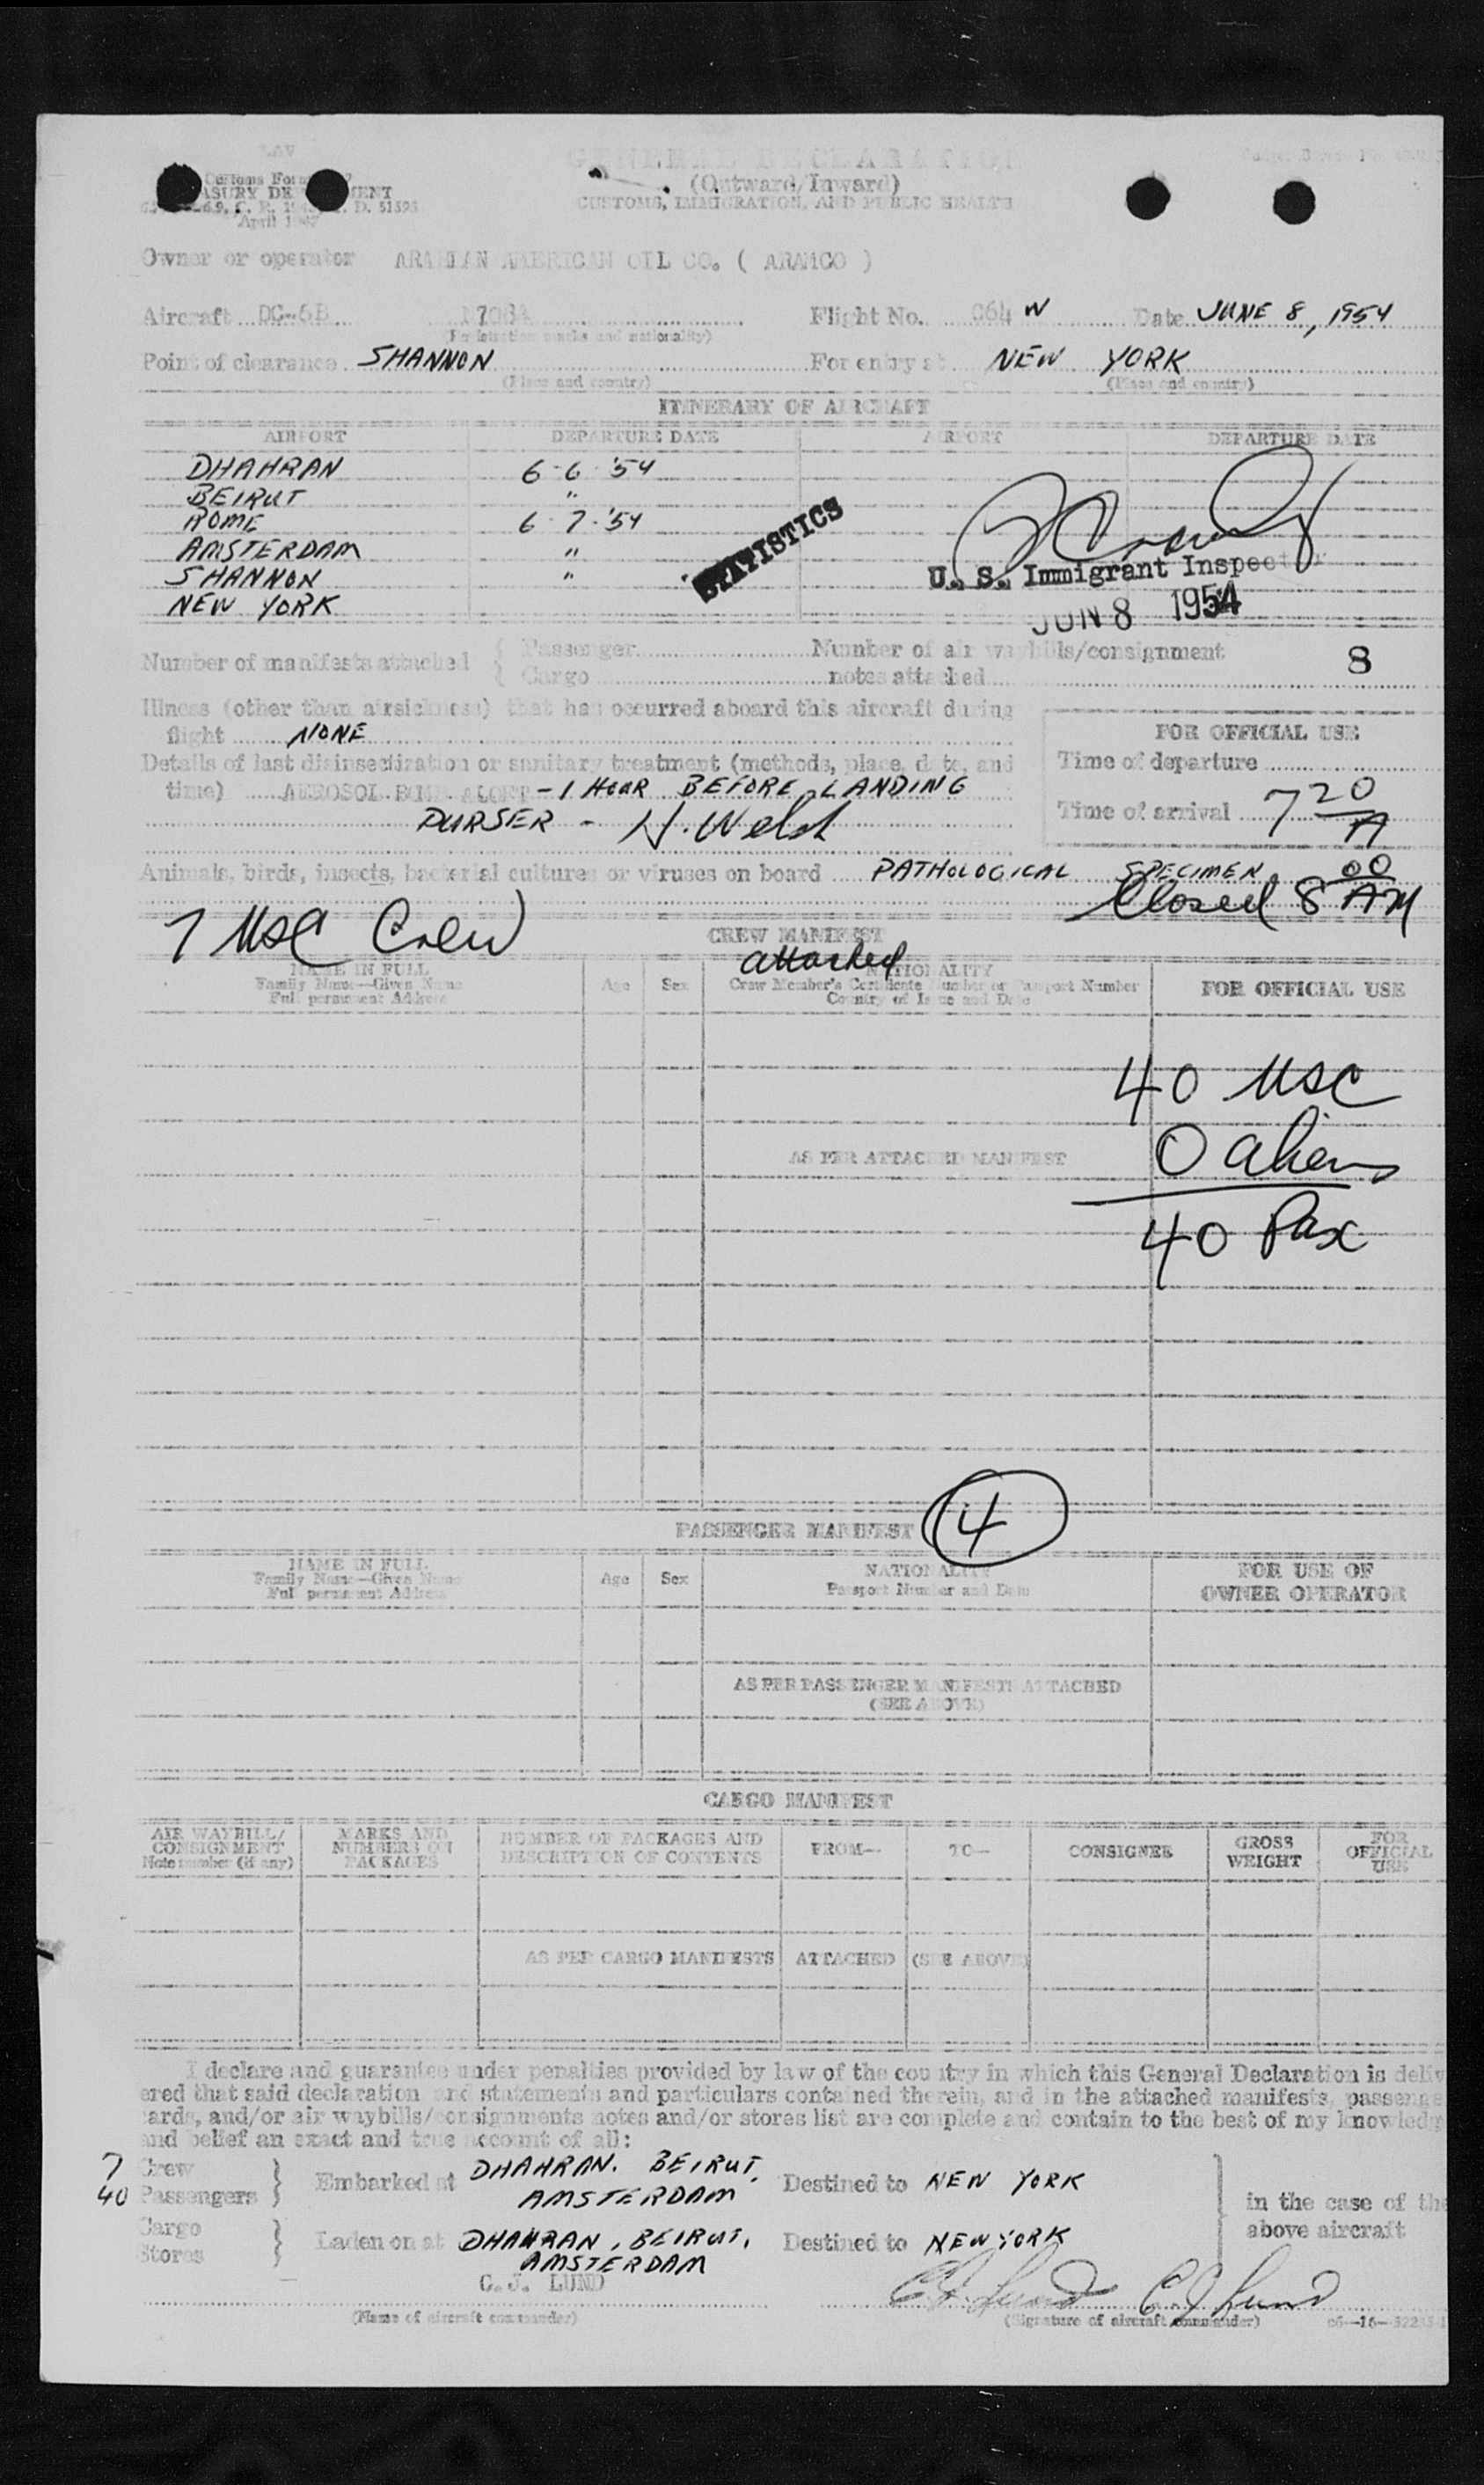 GENERAL DECLARATION
(Outward/Inward)
CUSTOMS, IMMIGRATION, AND PUBLIC HEALTH
Customs Form
April
Owner or operator ARABIAN AMERICAN OIL CO. ( ARAMCO )
Aircraft DC-6B Flight No. C64 W Date JUNE 8, 1954
(Registration marks and nationality)
Point of clearance SHANNON For entry at NEW YORK
(Place and country) (Place and country)
ITINERARY OF AIRCRAFT
AIRPORT DEPARTURE DATE AIRPORT DEPARTURE DATE
DHAHRAN 6-6-'54
BEIRUT "
ROME 6-7-'54
AMSTERDAM "
SHANNON "
NEW YORK
STATISTICS
U. S. Immigrant Inspector
JUN 8 1954
Number of manifests attached { Passenger Number of air waybills/consignment 8
Cargo notes attached
Illness (other than airsickness) that has occurred aboard this aircraft during
flight NONE
FOR OFFICIAL USE
Details of last disinsectization or sanitary treatment (methods, place, date, and
Time of departure
time) AEROSOL BOMB - 1 HOUR BEFORE LANDING
Time of arrival 7 20 A
PURSER - H. Welsh
Animals, birds, insects, bacterial cultures or viruses on board PATHOLOGICAL SPECIMEN
Closed 8 00 AM
7 USC Crew
CREW MANIFEST
attached
NAME IN FULL
Family Name—Given Name
Full permanent Address
Age Sex
NATIONALITY
Crew Member's Certificate Number or Passport Number
Country of Issue and Date
FOR OFFICIAL USE
40 USC
AS PER ATTACHED MANIFEST
0 aliens
40 Pax
PASSENGER MANIFEST
4
NAME IN FULL
Family Name—Given Name
Full permanent Address
Age Sex
NATIONALITY
Passport Number and Date
FOR USE OF
OWNER OPERATOR
AS PER PASSENGER MANIFESTS ATTACHED
(SEE ABOVE)
CARGO MANIFEST
AIR WAYBILL/
CONSIGNMENT
Note number (if any)
MARKS AND
NUMBERS ON
PACKAGES
NUMBER OF PACKAGES AND
DESCRIPTION OF CONTENTS
FROM— TO— CONSIGNEE
GROSS
WEIGHT
FOR
OFFICIAL
USE
AS PER CARGO MANIFESTS ATTACHED (SEE ABOVE)
I declare and guarantee under penalties provided by law of the country in which this General Declaration is deliv
ered that said declaration and statements and particulars contained therein, and in the attached manifests, passenge
cards, and/or air waybills/consignments notes and/or stores list are complete and contain to the best of my knowledg
and belief an exact and true account of all:
7 Crew
40 Passengers } Embarked at DHAHRAN. BEIRUT, AMSTERDAM Destined to NEW YORK
in the case of the
above aircraft
Cargo
Stores } Laden on at DHAHRAN, BEIRUT, AMSTERDAM Destined to NEW YORK
C. J. LUND C J Lund C J Lund
(Name of aircraft commander) (Signature of aircraft commander)